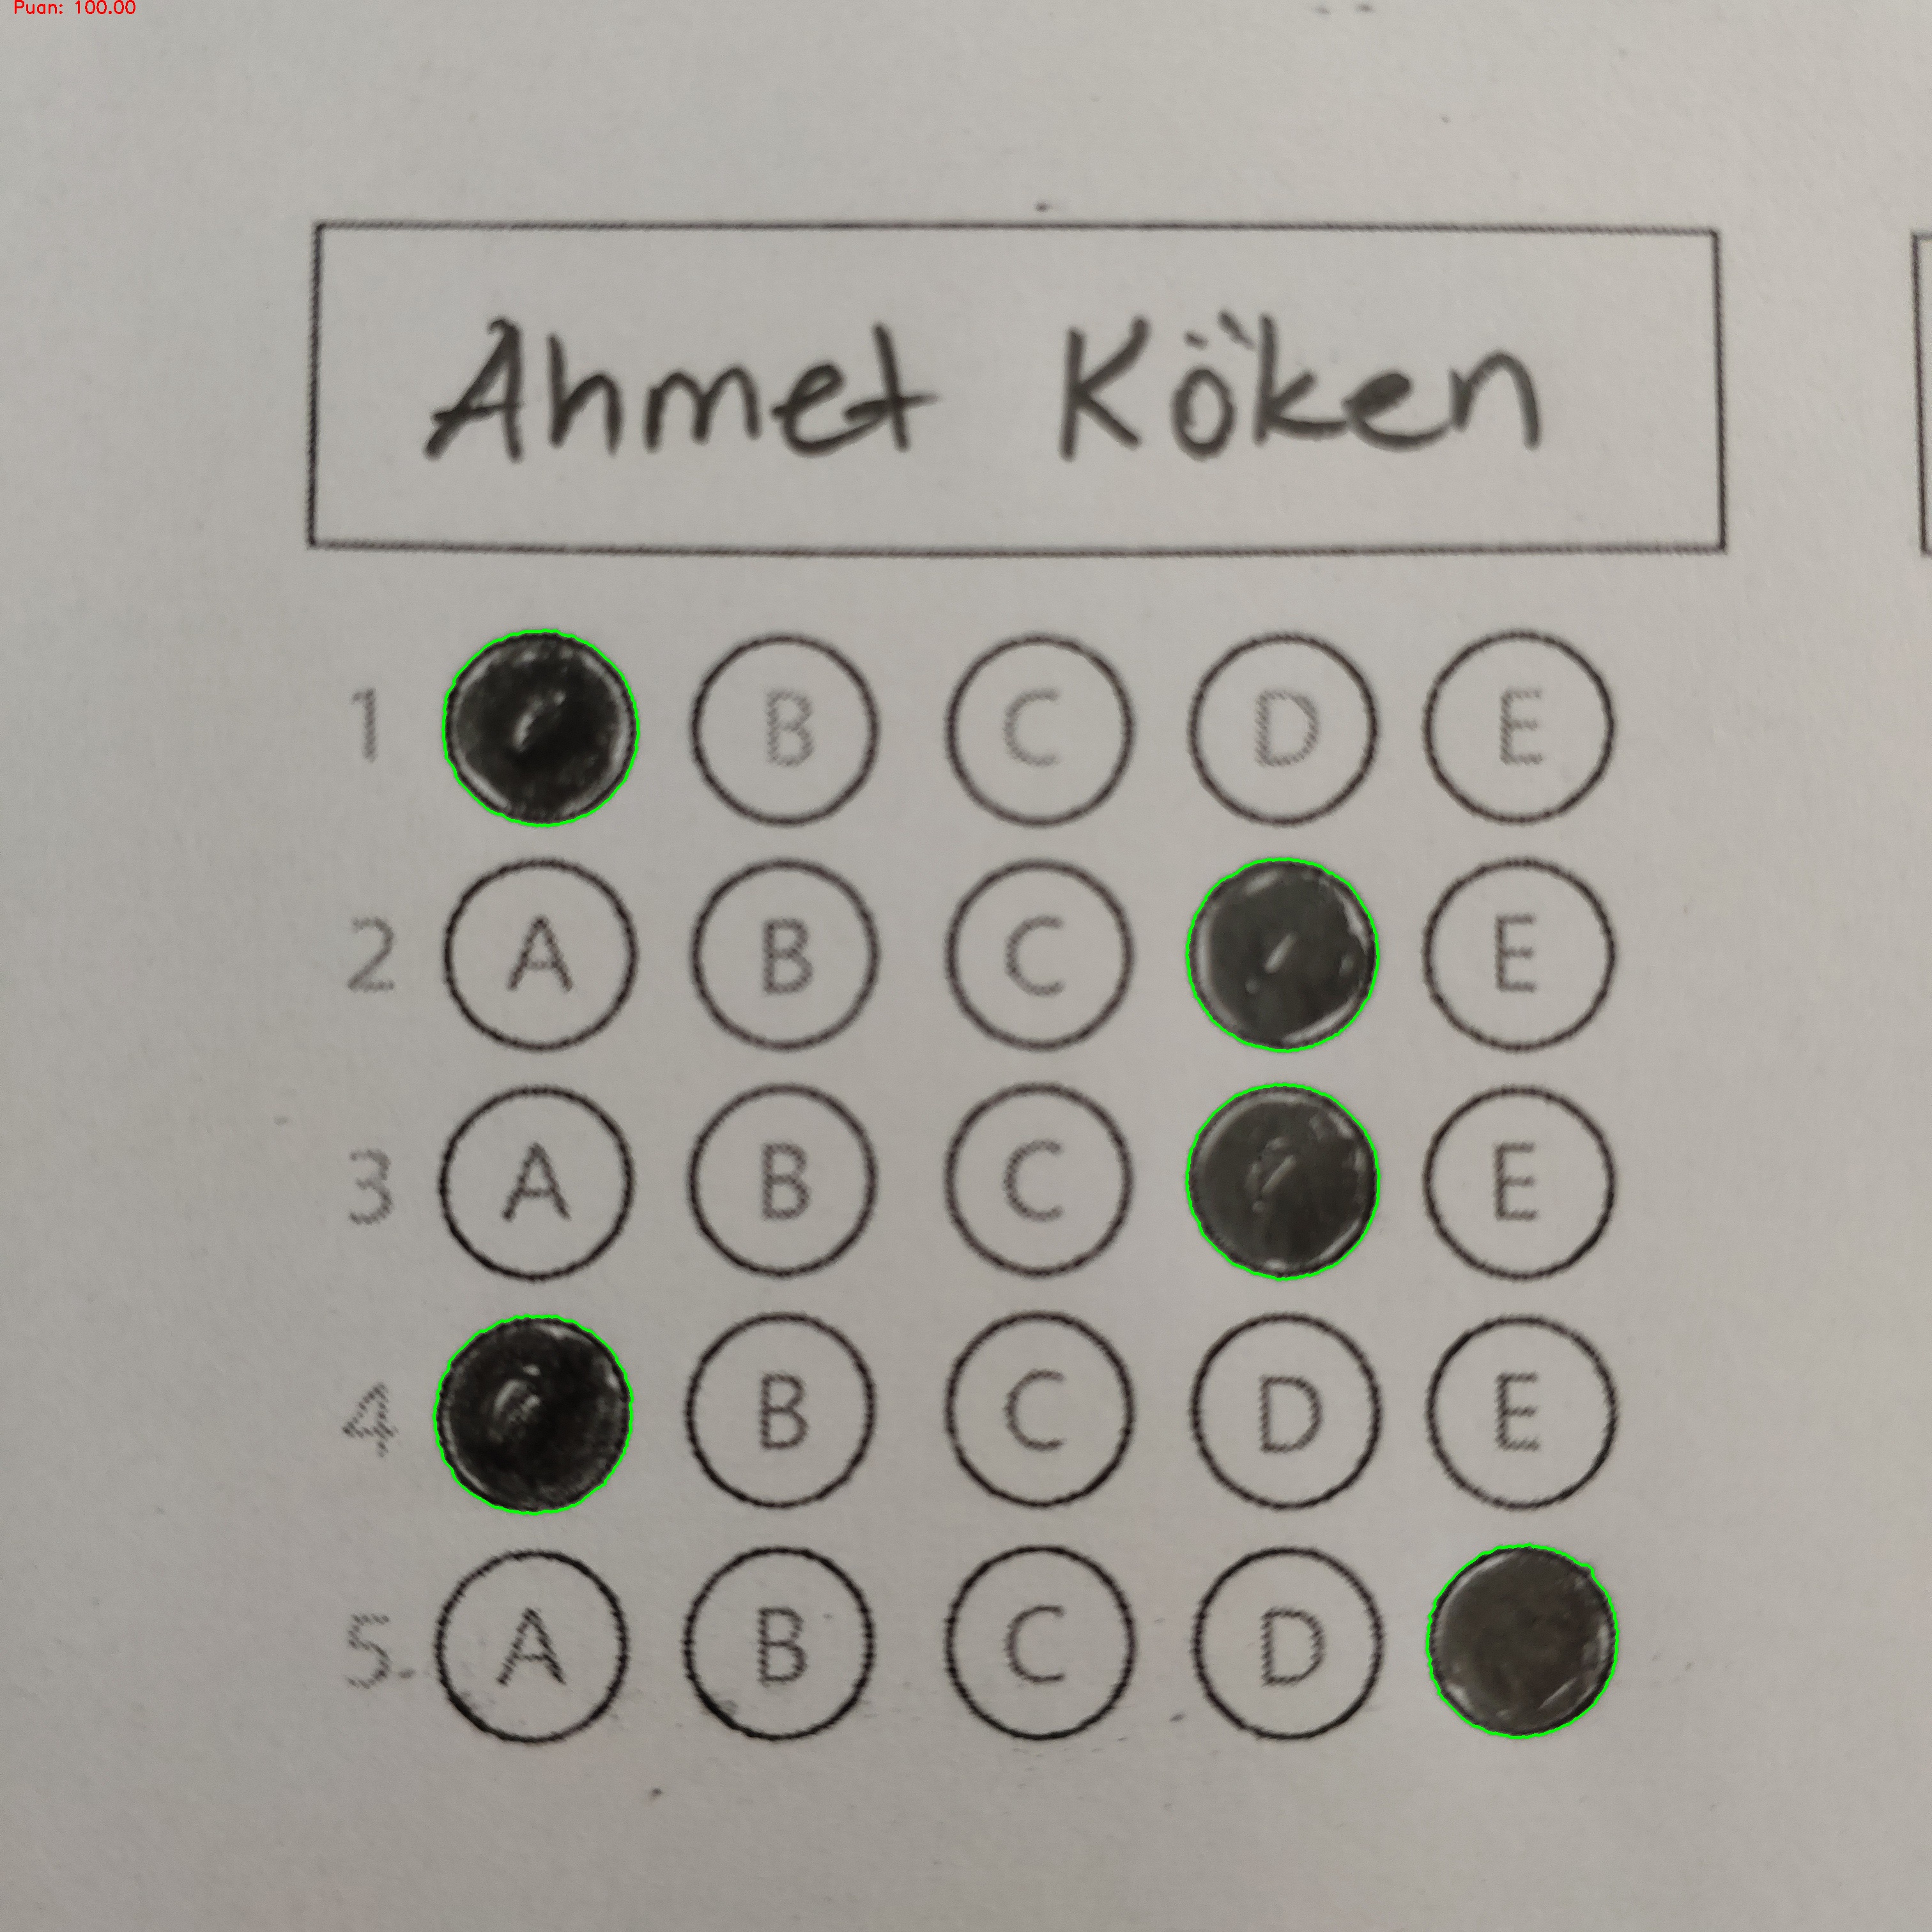 Puan: 100.00
Ahmet Köken
1 B C D E
2 A B C E
3 A B C E
4 B C D E
5. A B C D